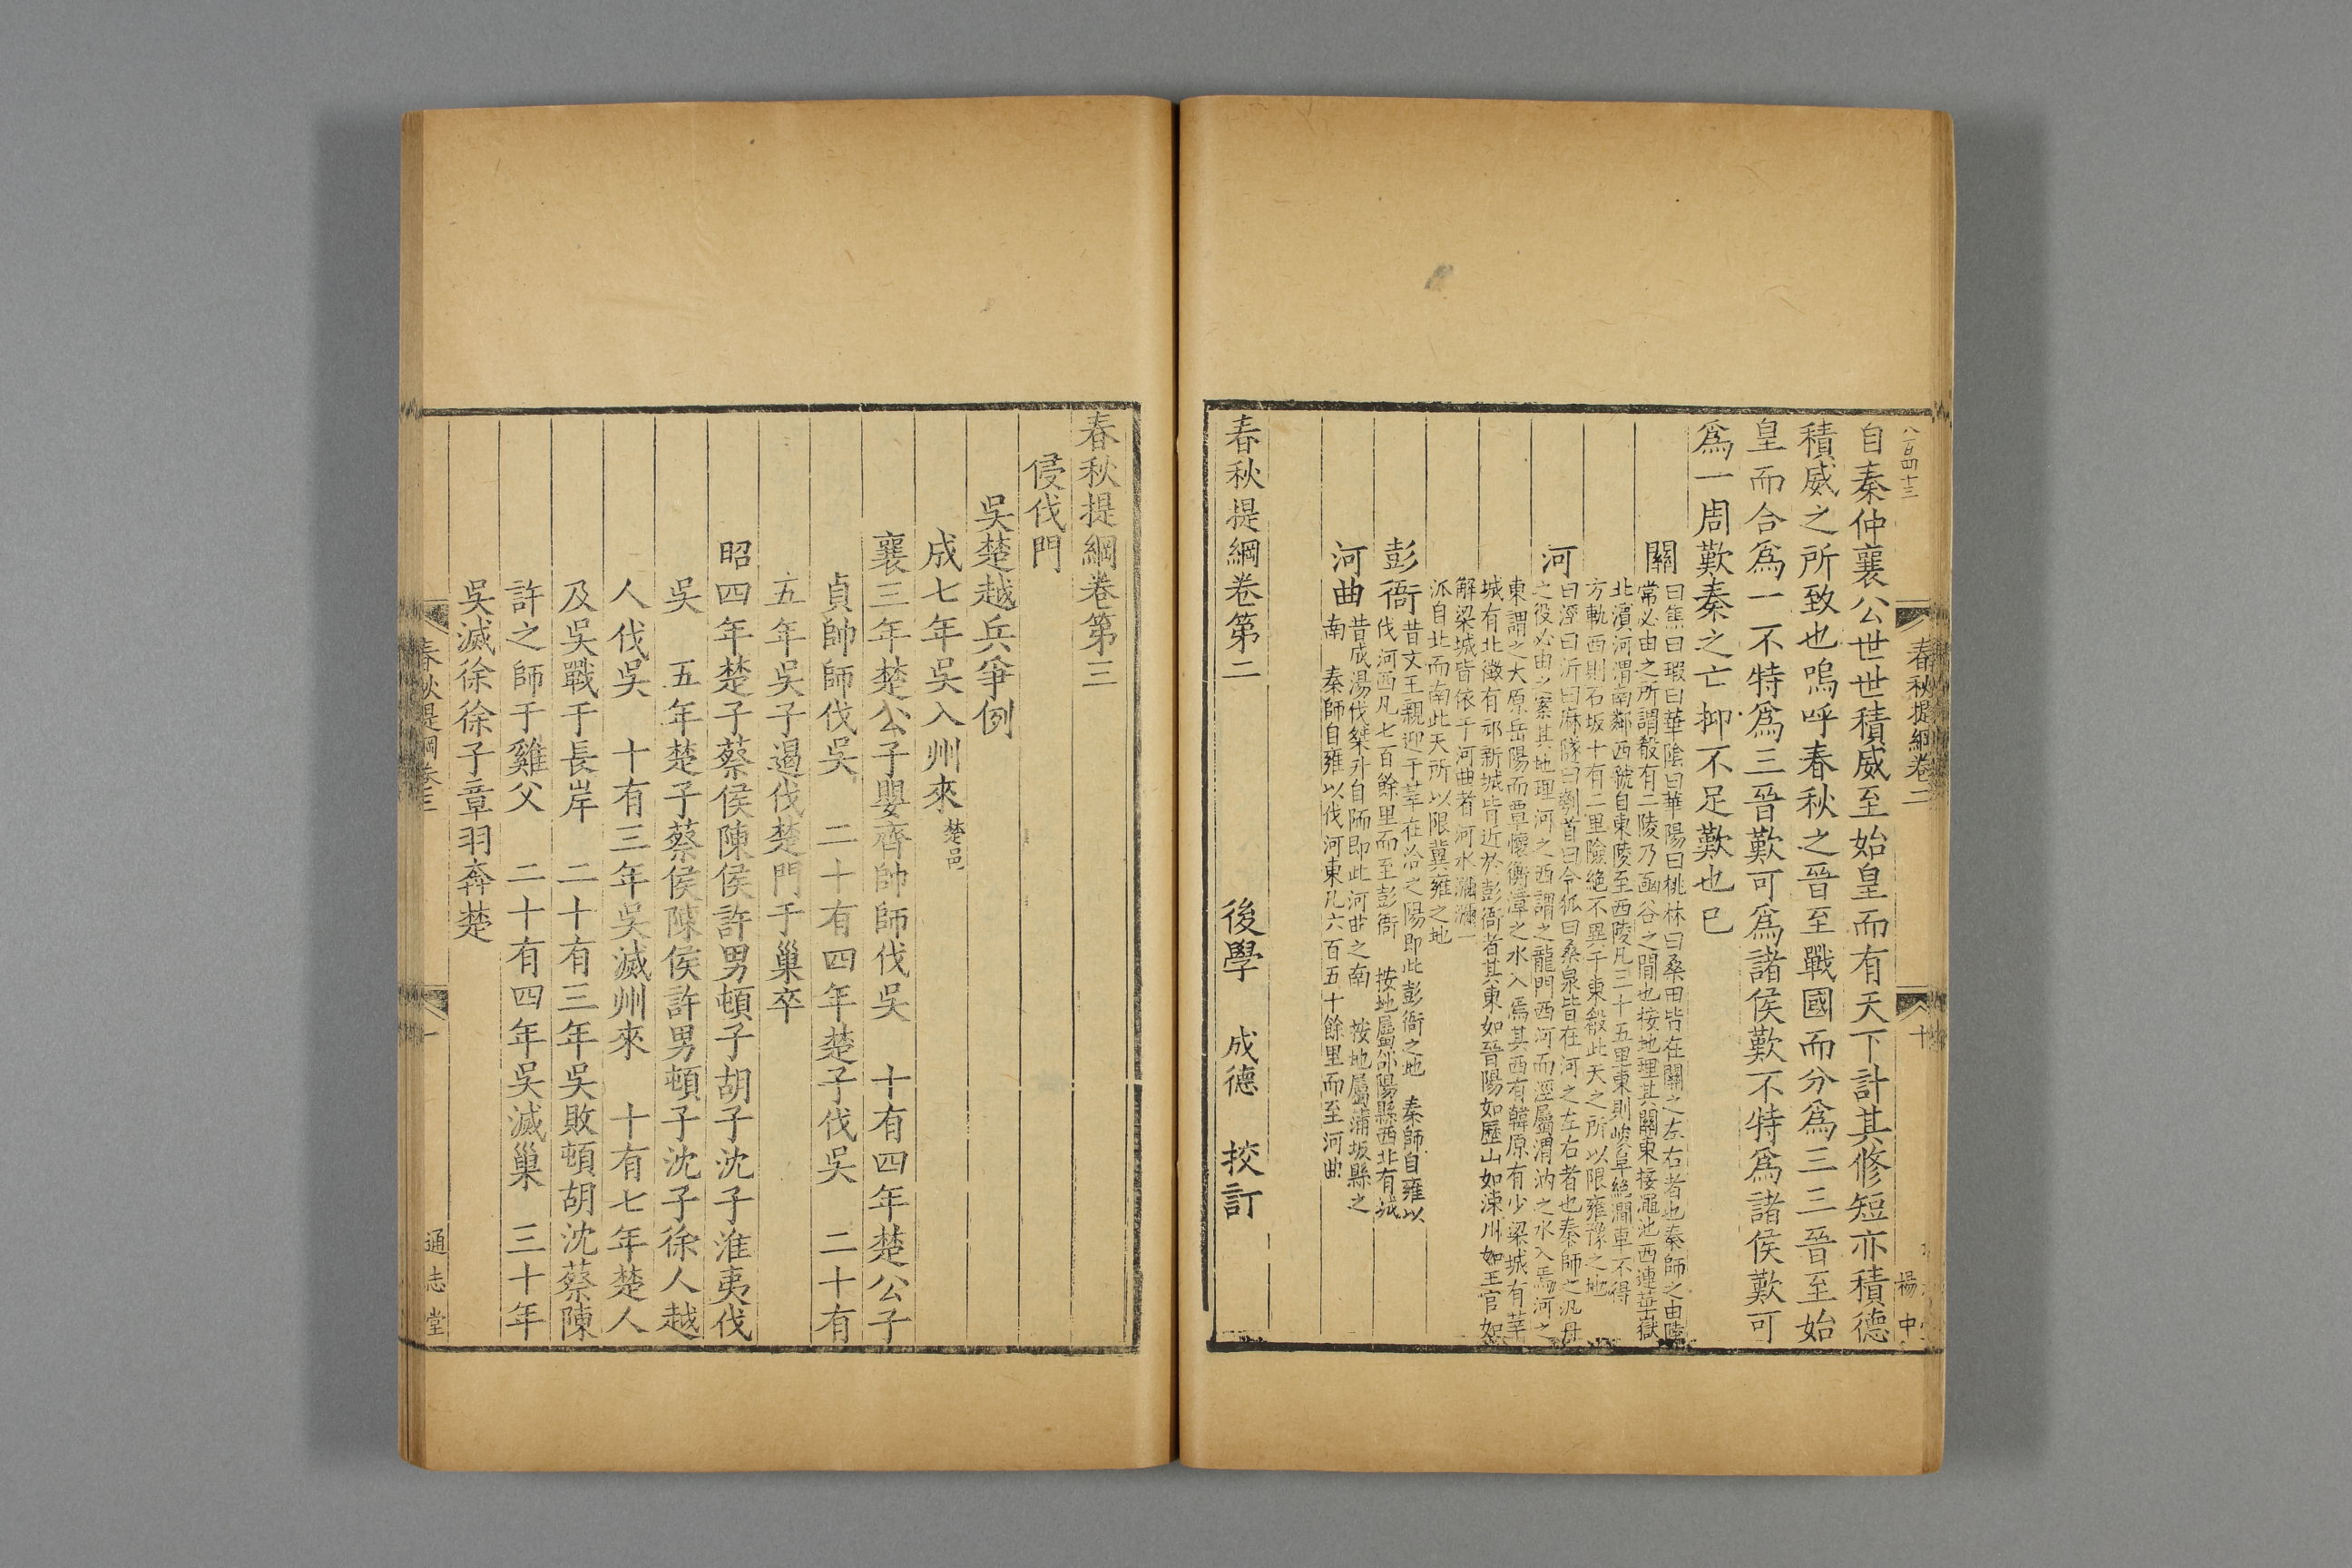 八百四十三
自秦仲襄公世世積威至始皇而有天下計其修短亦積德
積威之所致也嗚呼春秋之晉至戰國而分爲三三晉至始
皇而合爲一不特爲三晉歎可爲諸侯歎不特爲諸侯歎可
爲一周歎秦之亡抑不足歎也已
關
曰焦曰瑕曰華陰曰華陽曰桃林曰桑田皆在關之左右者也秦師之由陸
常必由之所謂殽有二陵乃函谷之間也按地理其關東接澠池西連華嶽
北濱河渭南鄰西虢自東陵至西陵凡三十五里東則峻阜絶澗車不得
方軌西則石坂十有二里險絶不異于東殽此天之所以限雍豫之地
河
曰涇曰沂曰麻隧曰刳首曰令狐曰桑泉皆在河之左右者也秦師之汎舟
之役必由之案其地理河之西謂之龍門西河而涇屬渭汭之水入焉河之
東謂之大原岳陽而覃懷衡漳之水入焉其西有韓原有少梁城有莘
城有北徵有邧新城皆近於彭衙者其東如晉陽如歷山如涑川如王官如
解梁城皆依于河曲者河水瀰瀰一
派自北而南此天所以限冀雍之地
彭衙
昔文王親迎于莘在洽之陽即此彭衙之地　秦師自雍以
伐河西凡七百餘里而至彭衙　按地屬郃陽縣西北有城
河曲
昔成湯伐桀升自陑即此河曲之南　按地屬蒲坂縣之
南　秦師自雍以伐河東凡六百五十餘里而至河曲
春秋提綱卷第二
後學　成德　挍訂
春秋提綱卷二
十
楊中
春秋提綱卷第三
侵伐門
吳楚越兵爭例
成七年吳入州來 楚邑
襄三年楚公子嬰齊帥師伐吳　十有四年楚公子
貞帥師伐吳　二十有四年楚子伐吳　二十有
五年吳子遏伐楚門于巢卒
昭四年楚子蔡侯陳侯許男頓子胡子沈子淮夷伐
吳　五年楚子蔡侯陳侯許男頓子沈子徐人越
人伐吳　十有三年吳滅州來　十有七年楚人
及吳戰于長岸　二十有三年吳敗頓胡沈蔡陳
許之師于雞父　二十有四年吳滅巢　三十年
吳滅徐徐子章羽奔楚
春秋提綱卷三
一
通志堂